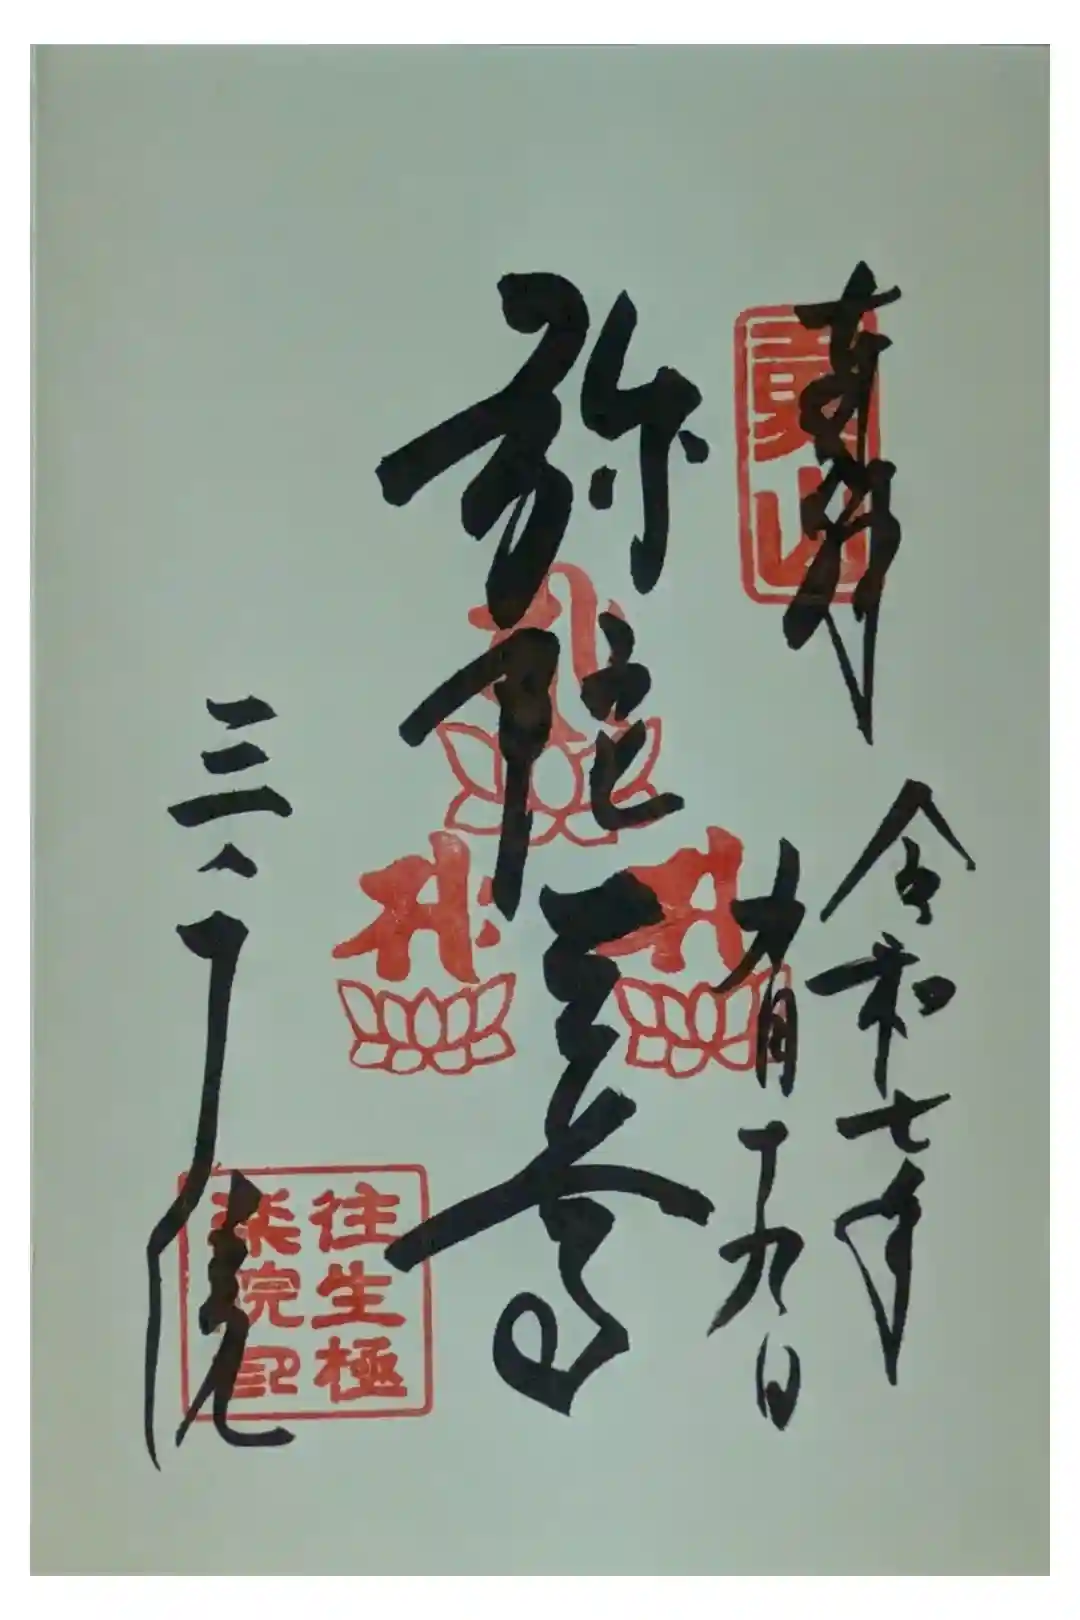 奉拝
令和七年
月十九日
弥陀三尊
三千院
往生極
楽院印